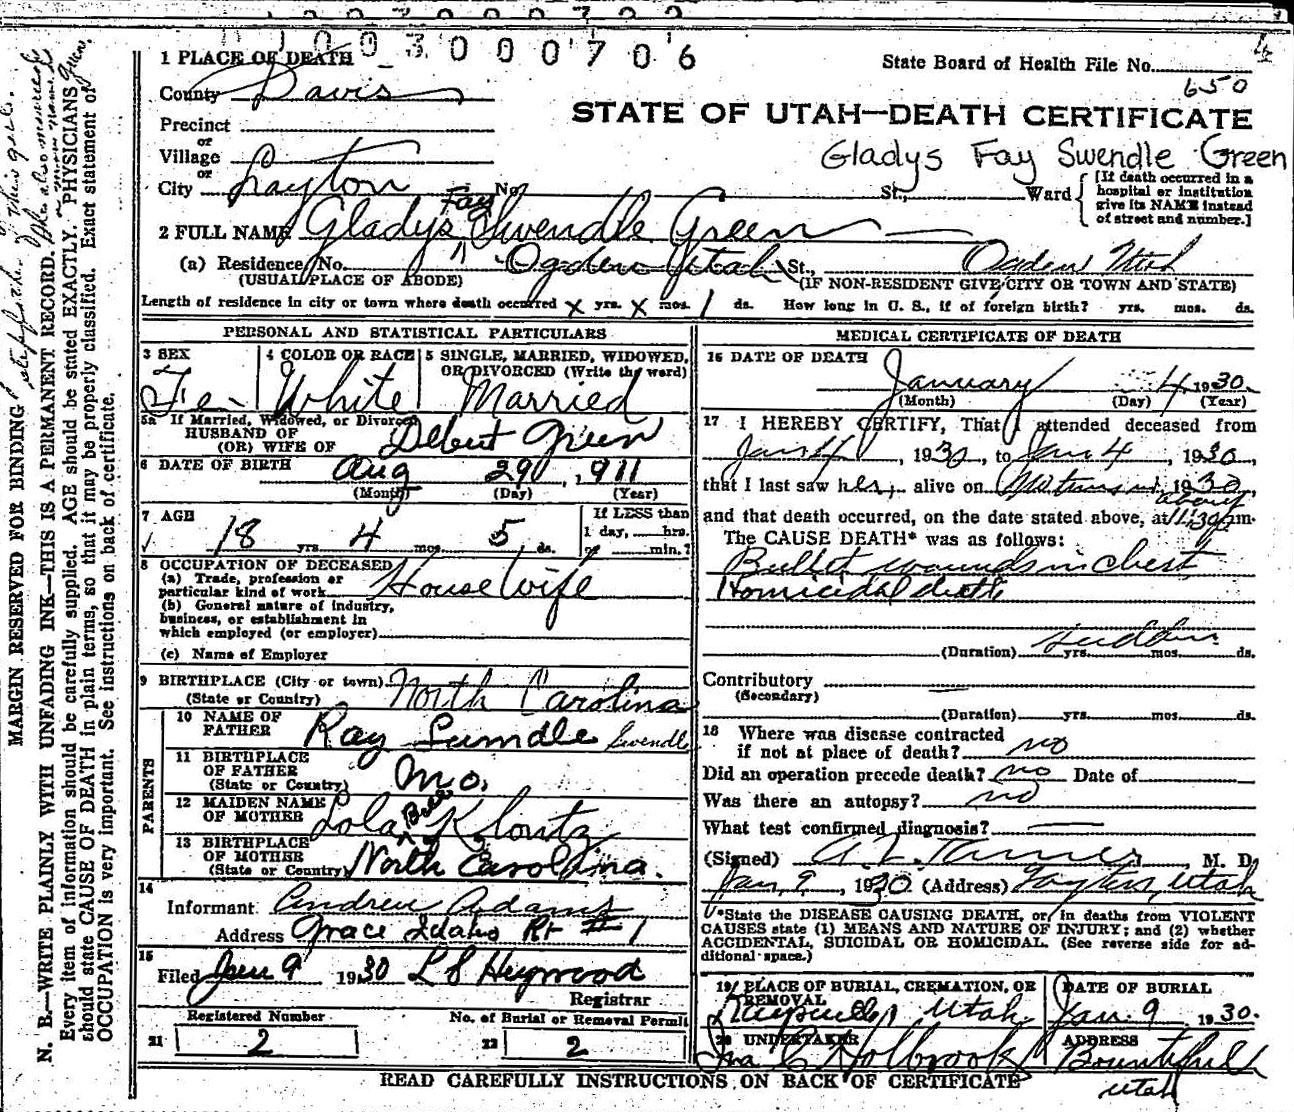 1003000706
1 PLACE OF DEATH
State Board of Health File No.
650
County Davis
STATE OF UTAH—DEATH CERTIFICATE
Precinct
or
Village
or
Gladys Fay Swendle Green
City Layton No. St., Ward
[If death occurred in a hospital or institution give its NAME instead of street and number.]
2 FULL NAME Gladys Fay Swendle Green
(a) Residence No. Ogden Utah St., Ogden Utah
(USUAL PLACE OF ABODE) (IF NON-RESIDENT GIVE CITY OR TOWN AND STATE)
Length of residence in city or town where death occurred x yrs. x mos. 1 ds. How long in U. S., if of foreign birth? yrs. mos. ds.
PERSONAL AND STATISTICAL PARTICULARS
3 SEX 4 COLOR OR RACE 5 SINGLE, MARRIED, WIDOWED, OR DIVORCED (Write the word)
Fe- White Married
5a If Married, Widowed, or Divorced
HUSBAND OF
(OR) WIFE OF Delbert Green
6 DATE OF BIRTH Aug 29, 1911
(Month) (Day) (Year)
7 AGE If LESS than
18 yrs. 4 mos. 5 ds. 1 day, hrs.
or min.?
8 OCCUPATION OF DECEASED
(a) Trade, profession or
particular kind of work House Wife
(b) General nature of industry,
business, or establishment in
which employed (or employer)
(c) Name of Employer
9 BIRTHPLACE (City or town) North Carolina
(State or Country)
PARENTS
10 NAME OF
FATHER Ray Sumdle Swendle
11 BIRTHPLACE
OF FATHER Mo.
(State or Country)
12 MAIDEN NAME
OF MOTHER Lola Bell Kloutz
13 BIRTHPLACE
OF MOTHER
(State or Country) North Carolina.
14
Informant Andrew Adams
Address Grace Idaho Rt #1
15
Filed Jan 9 1930 L S Heywood
Registrar
Registered Number No. of Burial or Removal Permit
21 2 22 2
MEDICAL CERTIFICATE OF DEATH
16 DATE OF DEATH
January 4 1930.
(Month) (Day) (Year)
17 I HEREBY CERTIFY, That I attended deceased from
Jan 4, 1930, to Jan 4, 1930,
that I last saw her alive on 1930,
about
and that death occurred, on the date stated above, at 11:30 p m.
The CAUSE DEATH* was as follows:
Bullet wounds in chest
Homicidal death
sudden
(Duration) yrs. mos. ds.
Contributory
(Secondary)
(Duration) yrs. mos. ds.
18 Where was disease contracted
if not at place of death? no
Did an operation precede death? no Date of
Was there an autopsy? no
What test confirmed diagnosis?
(Signed) A. L. Tanner, M. D.
Jan, 9, 1930 (Address) Layton, Utah
*State the DISEASE CAUSING DEATH, or, in deaths from VIOLENT
CAUSES state (1) MEANS AND NATURE OF INJURY; and (2) whether
ACCIDENTAL, SUICIDAL OR HOMICIDAL. (See reverse side for ad-
ditional space.)
19 PLACE OF BURIAL, CREMATION, OR REMOVAL DATE OF BURIAL
Kaysville, Utah. Jan. 9 1930.
20 UNDERTAKER ADDRESS
Ira C Holbrook Bountiful
Utah
READ CAREFULLY INSTRUCTIONS ON BACK OF CERTIFICATE
MARGIN RESERVED FOR BINDING
N. B.—WRITE PLAINLY WITH UNFADING INK—THIS IS A PERMANENT RECORD.
Every item of information should be carefully supplied. AGE should be stated EXACTLY. PHYSICIANS
should state CAUSE OF DEATH in plain terms, so that it may be properly classified. Exact statement of
OCCUPATION is very important. See instructions on back of certificate.